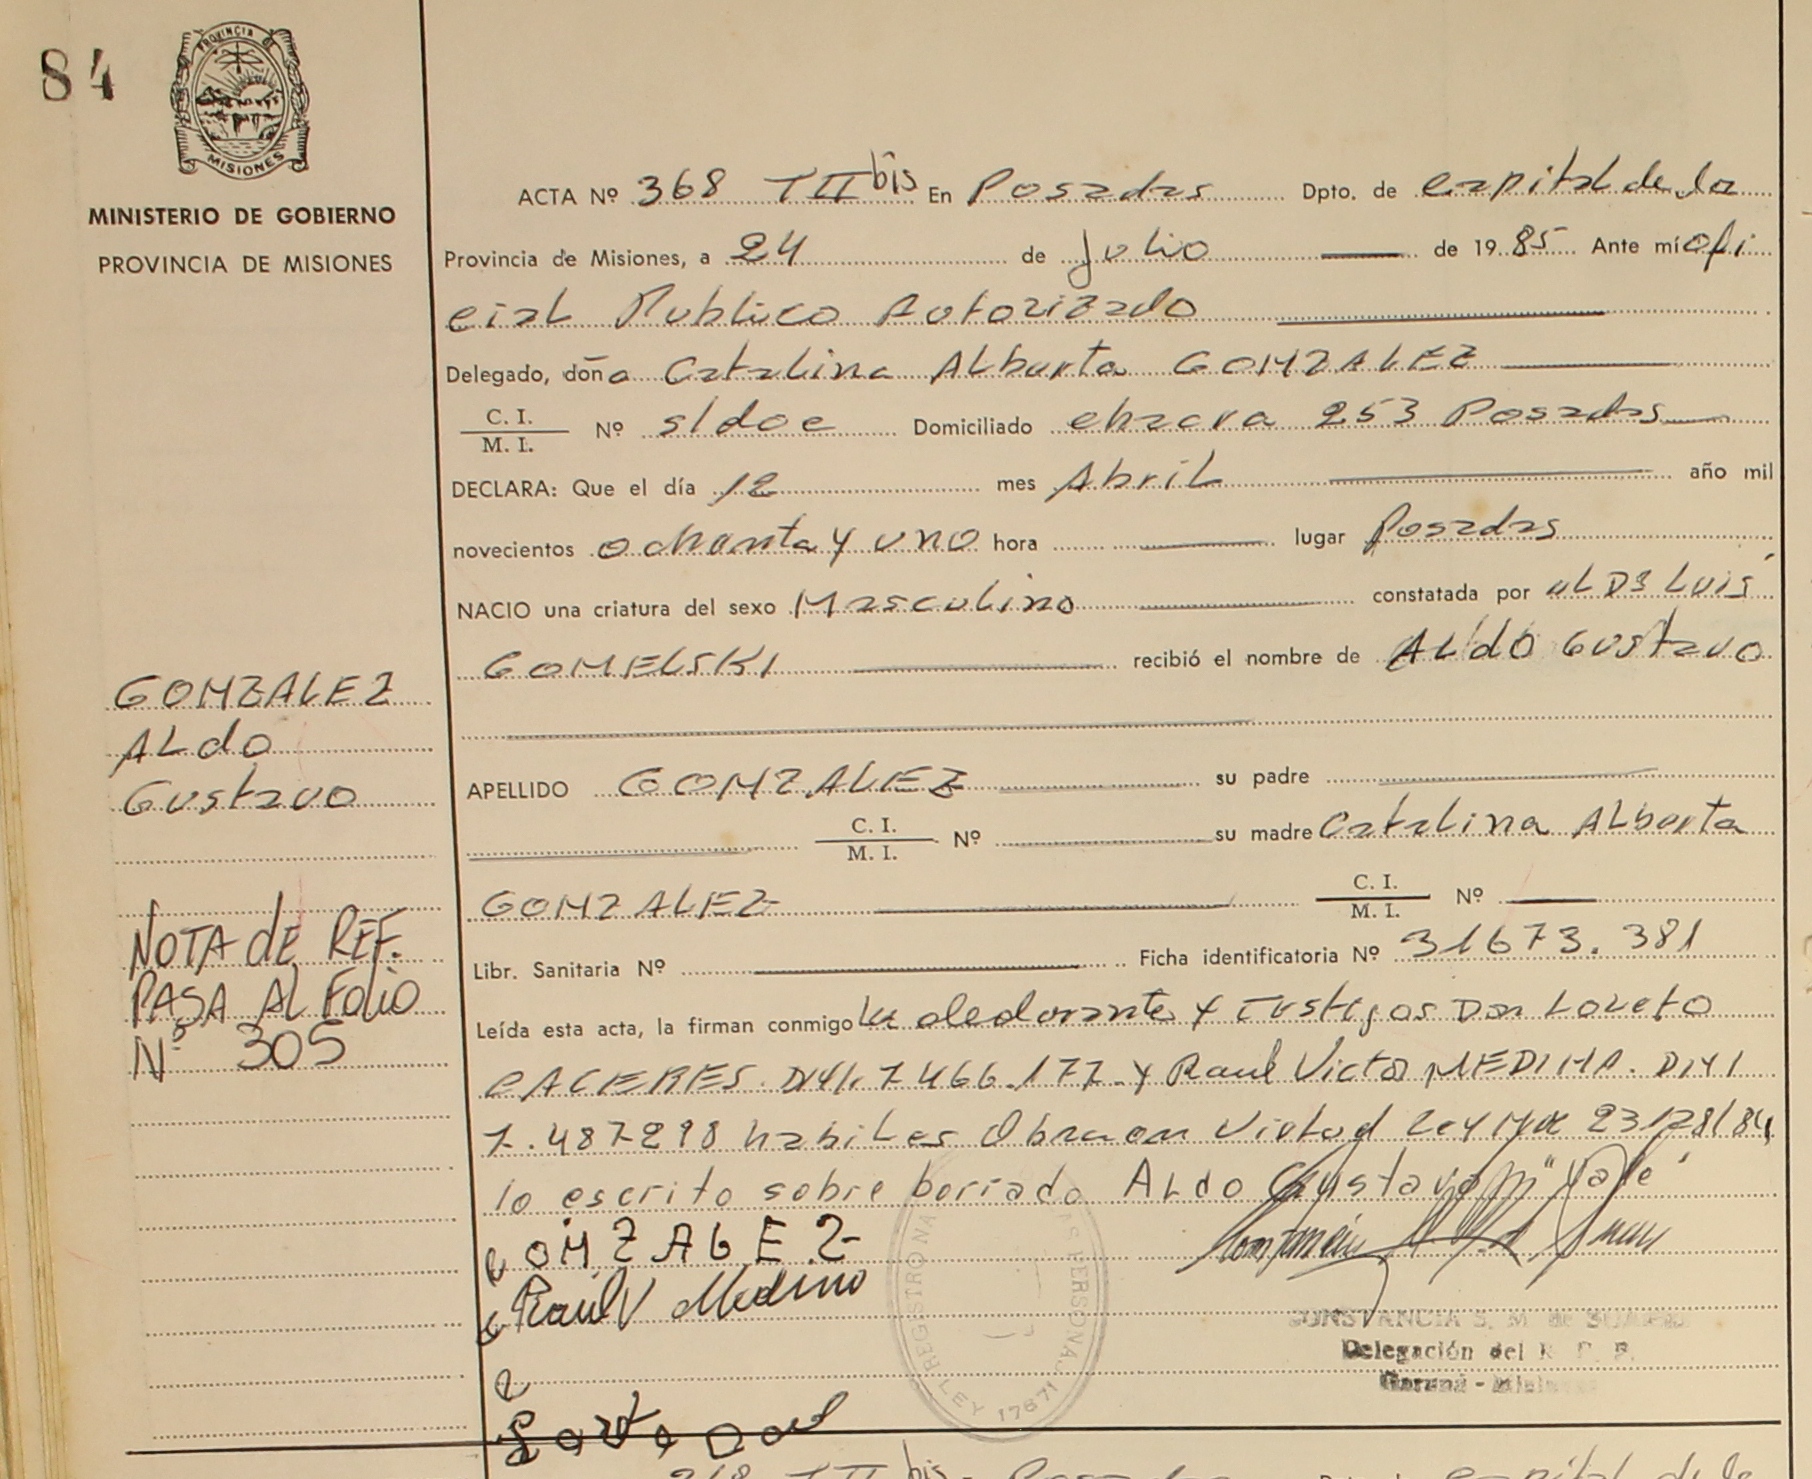 84
PROVINCIA DE
MISIONES
MINISTERIO DE GOBIERNO
PROVINCIA DE MISIONES
ACTA Nº 368 T II bis En Posadas Dpto. de capital de la
Provincia de Misiones, a 24 de Julio de 1985 Ante mí ofi
cial Publico Autorizado
Delegado, doña Catalina Alberta GONZALEZ
C. I.
M. I. Nº s/doc Domiciliado chacra 253 Posadas
DECLARA: Que el día 12 mes Abril año mil
novecientos ochenta y uno hora lugar Posadas
NACIO una criatura del sexo Masculino constatada por el Dr Luis
GOMELSKI recibió el nombre de ALdO Gustavo
APELLIDO GONZALEZ su padre
C. I.
M. I. Nº su madre Catalina Alberta
GONZALEZ C. I.
M. I. Nº
Libr. Sanitaria Nº Ficha identificatoria Nº 31673.381
Leída esta acta, la firman conmigo la declarante y testigos Don Loreto
CACERES. DNI. 7466.177. y Raul Victor MEDINA. DNI
7.487298 habiles Obra en Virtud Ley Nº 23128/84
lo escrito sobre borrado ALdo Gustavo "Vale"
GONZALEZ
ALdo
Gustavo
NOTA dE REF.
PASA AL FOLIO
Nº 305
GOMZALEZ
Raul V Medina
REGISTRO NA
PERSONAS
LEY 17671
CONSTANCIA S. M. de
Delegación del R. P.
Garupá - Misiones
368 T II bis Posadas capital de la